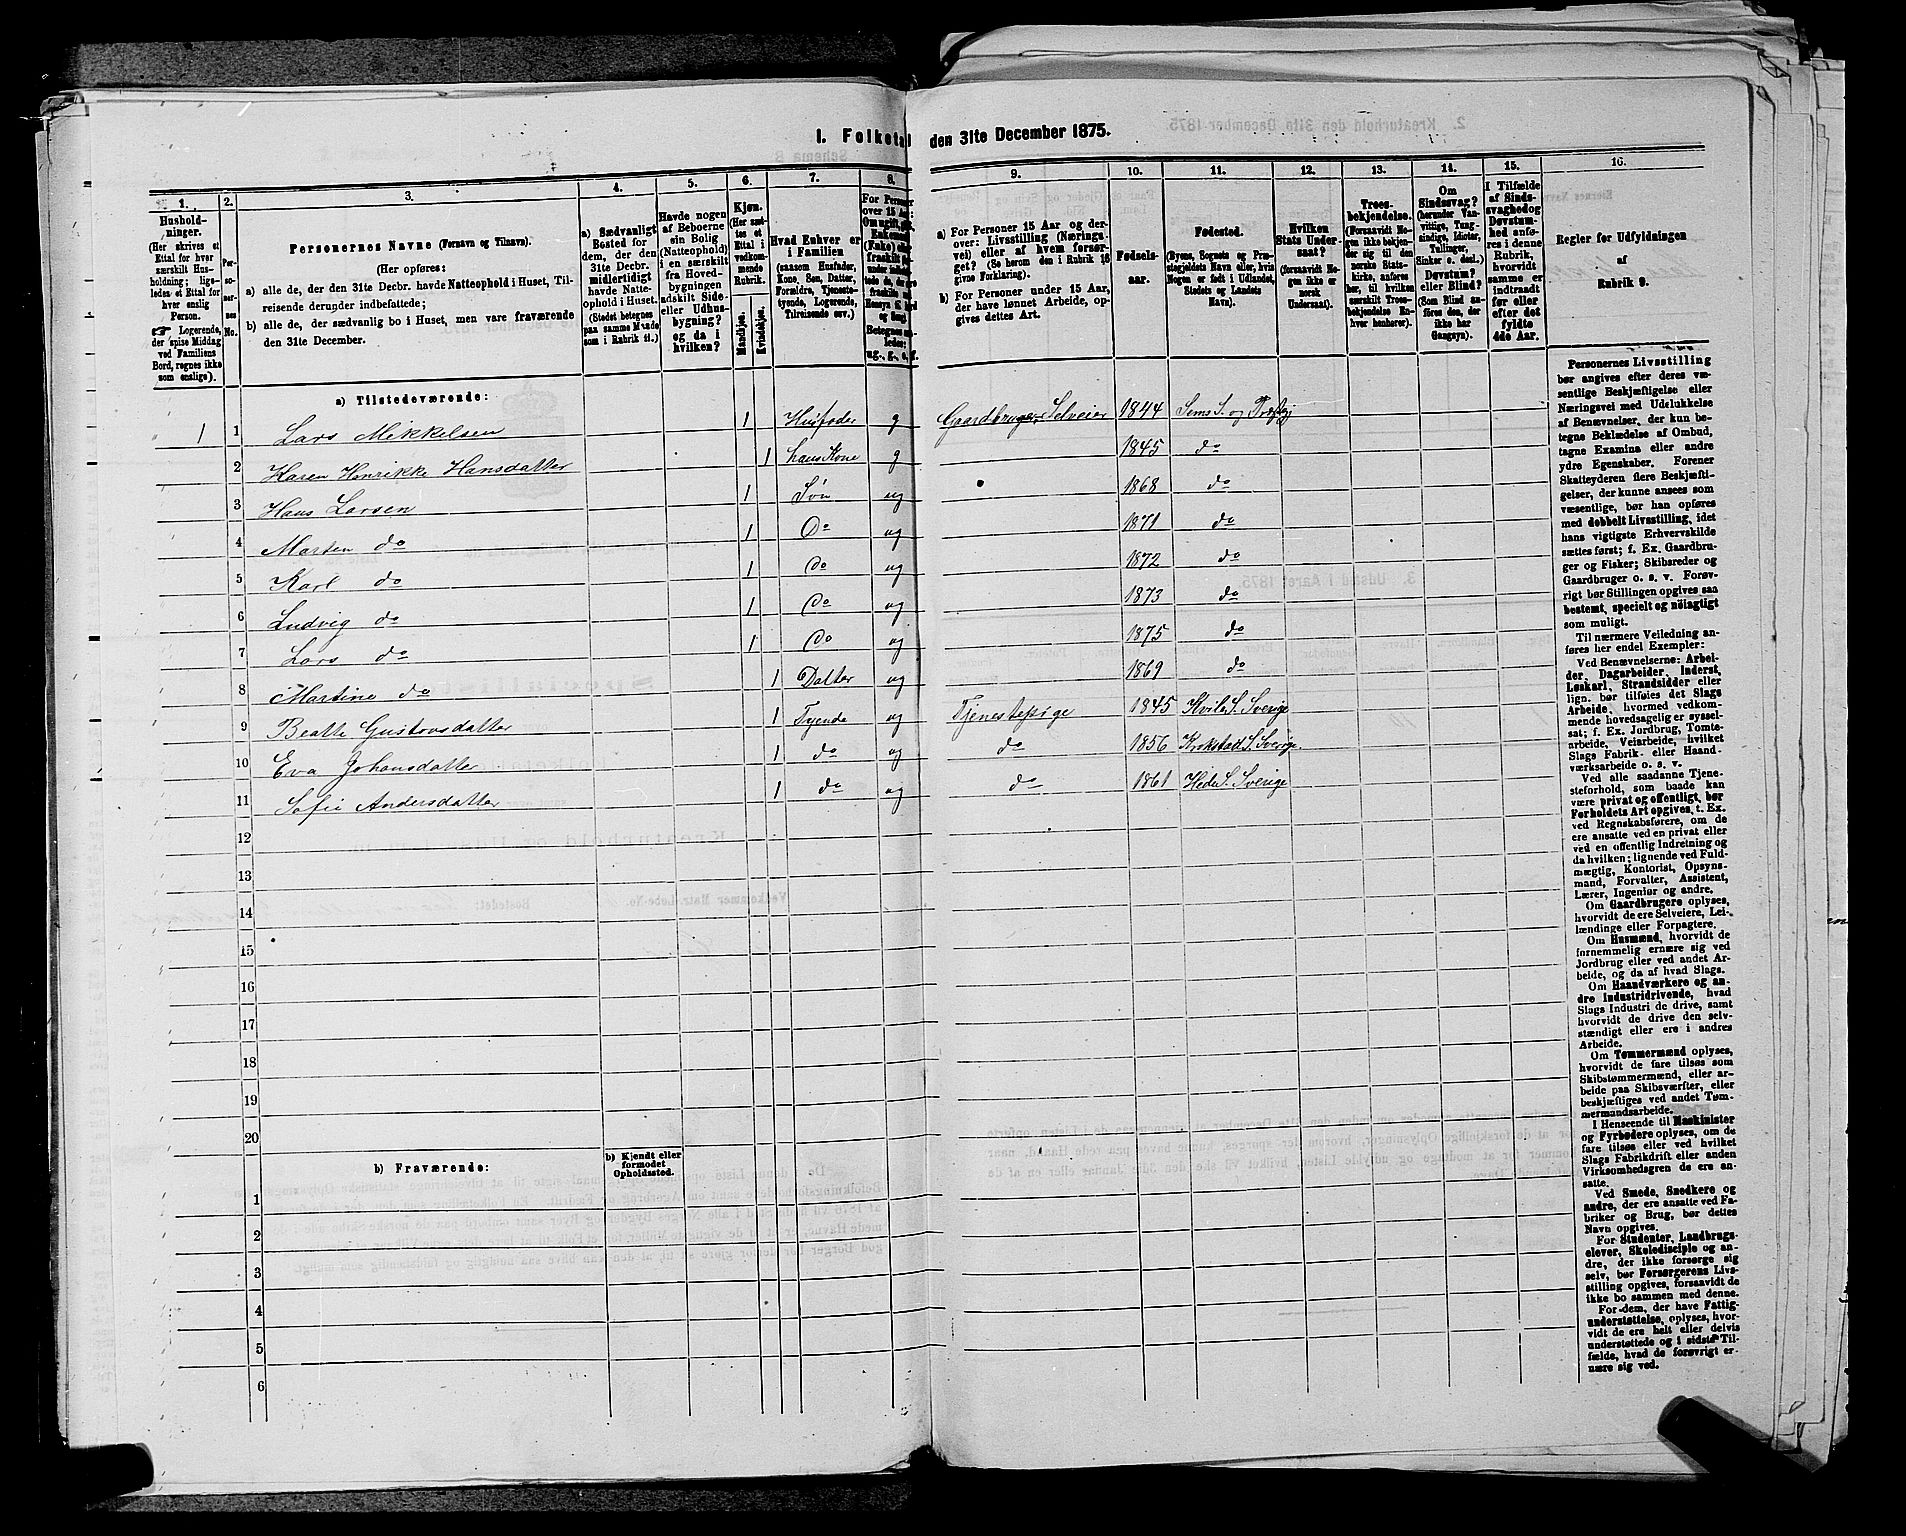 I. Folketal den 31te December 1875.
1. 2. 3. 4. 5. 6. 7. 8. 9. 10. 11. 12. 13. 14. 15. 16.
Husholdninger.
(Her skrives et Ettal for hver særskilt Husholdning; ligeledes et Ettal for hver enslig Person.
☞ Logerende, der spise Middag ved Familiens Bord, regnes ikke som enslige).
Personernes No.
Personernes Navne (Fornavn og Tilnavn).
(Her opføres:
a) alle de, der den 31te Decbr. havde Natteophold i Huset, Tilreisende derunder indbefattede;
b) alle de, der sædvanlig bo i Huset, men vare fraværende den 31te December.
a) Sædvanligt Bosted for dem, der den 31te Decbr. midlertidigt havde Natteophold i Huset.
(Stedet betegnes paa samme Maade som i Rubrik 11.)
Havde nogen af Beboerne sin Bolig (Natteophold) i en særskilt fra Hovedbygningen adskilt Side- eller Udhusbygning? og da i hvilken?
Kjøn.
(Her sættes et Ettal i vedkommende Rubrik.
Mandkjøn.
Kvindekjøn.
Hvad Enhver er i Familien
(saasom Husfader, Kone, Søn, Datter, Forældre, Tjenestetyende, Logerende, Tilreisende osv.)
a) For Personer 15 Aar og derover: Livsstilling (Næringsvei) eller af hvem forsørget? (Se herom den i Rubrik 16 Forklaring).
b) For Personer under 15 Aar, der have lønnet Arbeide, opgives dettes Art.
Fødselsaar.
Fødested.
(Byens, Sognets og Præstegjeldets Navn eller, hvis Nogen er født i Udlandet, Stedets og Landets Navn).
Hvilken Stats Undersaat?
(forsaavidt Nogen ikke er norsk Undersaat).
Troesbekjendelse.
(Forsaavidt Nogen ikke bekjender sig til den norske Statskirke, anføres her, til hvilken særskilt Troesbekjendelse Enhver henhører).
Om Sindssvag?
(herunder Vanvittige, Tungsindige, Idioter, Tullinger, Sinker o. desl.)
Døvstum? eller Blind?
(Som Blind anføres den, der ikke har Gangsyn).
I Tilfælde af Sindssvaghed og Døvstum. anføres i denne Rubrik, hvorvidt samme er indtraadt før eller efter det fyldte 4de Aar.
Regler for Udfyldningen af Rubrik 9.
a) Tilstedeværende:
1 1 Lars Mikkelsen 1 Husfader g Gaardbruger Selveier 1844 Sems S. og Præstgj
2 Karen Henrikke Hansdatter 1 hans Kone g 1845 do
3 Hans Larsen 1 Søn ug 1868 do
4 Marten do 1 Do ug 1871 do
5 Karl do 1 Do ug 1872 do
6 Ludvig do 1 Do ug 1873 do
7 Lars do 1 Do ug 1875 do
8 Martine do 1 Datter ug 1869 do
9 Beatte Gustovsdatter 1 Tyende ug Tjenestepige 1845 Kvile S. Sverige
10 Eva Johansdatter 1 do ug do 1856 Krokstad S. Sverige
11 Sofie Andersdatter 1 do ug do 1861 Hede S. Sverige
12
13
14
15
16
17
18
19
20
b) Fraværende:
b) Kjendt eller formodet Opholdssted.
1
2
3
4
5
6
Personernes Livsstilling
bør angives efter deres væ-
sentlige Beskjæftigelse eller
Næringsvei med Udelukkelse
af Benævnelser, der kun be-
tegne Beklædelse af Ombud,
tagne Examina eller andre
ydre Egenskaber. Forener
Skatteyderen flere Beskjæfti-
gelser, der kunne ansees som
væsentlige, bør han opføres
med dobbelt Livsstilling, idet
hans vigtigste Erhvervskilde
sættes først; f. Ex. Gaardbru-
ger og Fisker; Skibsreder og
Gaardbruger o. s. v. Forøv-
rigt bør Stillingen opgives saa
bestemt, specielt og nøiagtigt
som muligt.
Til nærmere Veiledning an-
føres her endel Exempler:
Ved Benævnelserne: Arbei-
der, Dagarbeider, Inderst,
Løskarl, Strandsidder eller
lign. bør tilføies det Slags
Arbeide, hvormed vedkom-
mende hovedsagelig er syssel-
sat; f. Ex. Jordbrug, Tomte-
arbeide, Veiarbeide, hvilket
Slags Fabrik- eller Haand-
værksarbeide o. s. v.
Ved alle saadanne Tjene-
steforhold, som baade kan
være privat og offentligt, bør
Forholdets Art opgives, t. Ex.
ved Regnskabsførere, om de
ere ansatte ved en privat eller
ved en offentlig Indretning og
da hvilken; lignende ved Fuld-
mægtig, Kontorist, Opsyns-
mand, Forvalter, Assistent,
Lærer, Ingeniør og andre.
Om Gaardbrugere oplyses,
hvorvidt de ere Selveiere, Lei-
lændinge eller Forpagtere.
Om Husmænd, hvorvidt de
fornemmelig ernære sig ved
Jordbrug eller ved andet Ar-
beide, og da af hvad Slags.
Om Haandværkere og an-
dre Industridrivende, hvad
Slags Industri de drive, samt
hvorvidt de drive den selv-
stændigt eller ere i andres
Arbeide.
Om Tømmermænd oplyses,
hvorvidt de fare tilsøs som
Skibstømmermænd, eller ar-
beide paa Skibsværfter, eller
beskjæftiges ved andet Tøm-
mermandsarbeide.
I Henseende til Maskinister
og Fyrbødere oplyses, om de
fare tilsøs eller ved hvilket
Slags Fabrikdrift eller anden
Virksomhedsgren de ere an-
satte.
Ved Smede, Snedkere og
andre, der ere ansatte ved Fa-
briker og Brug, bør dettes
Navn opgives.
For Studenter, Landbrugs-
elever, Skoledisciple og an-
dre, der ikke forsørge sig
selv, bør Forsørgerens Livs-
stilling opgives, forsaavidt de
ikke bo sammen med denne.
For dem, der have Fattig-
understøttelse, oplyses, hvor-
vidt de ere helt eller delvis
understøttede og i sidste Til-
fælde, hvad de forøvrigt er-
nære sig ved.